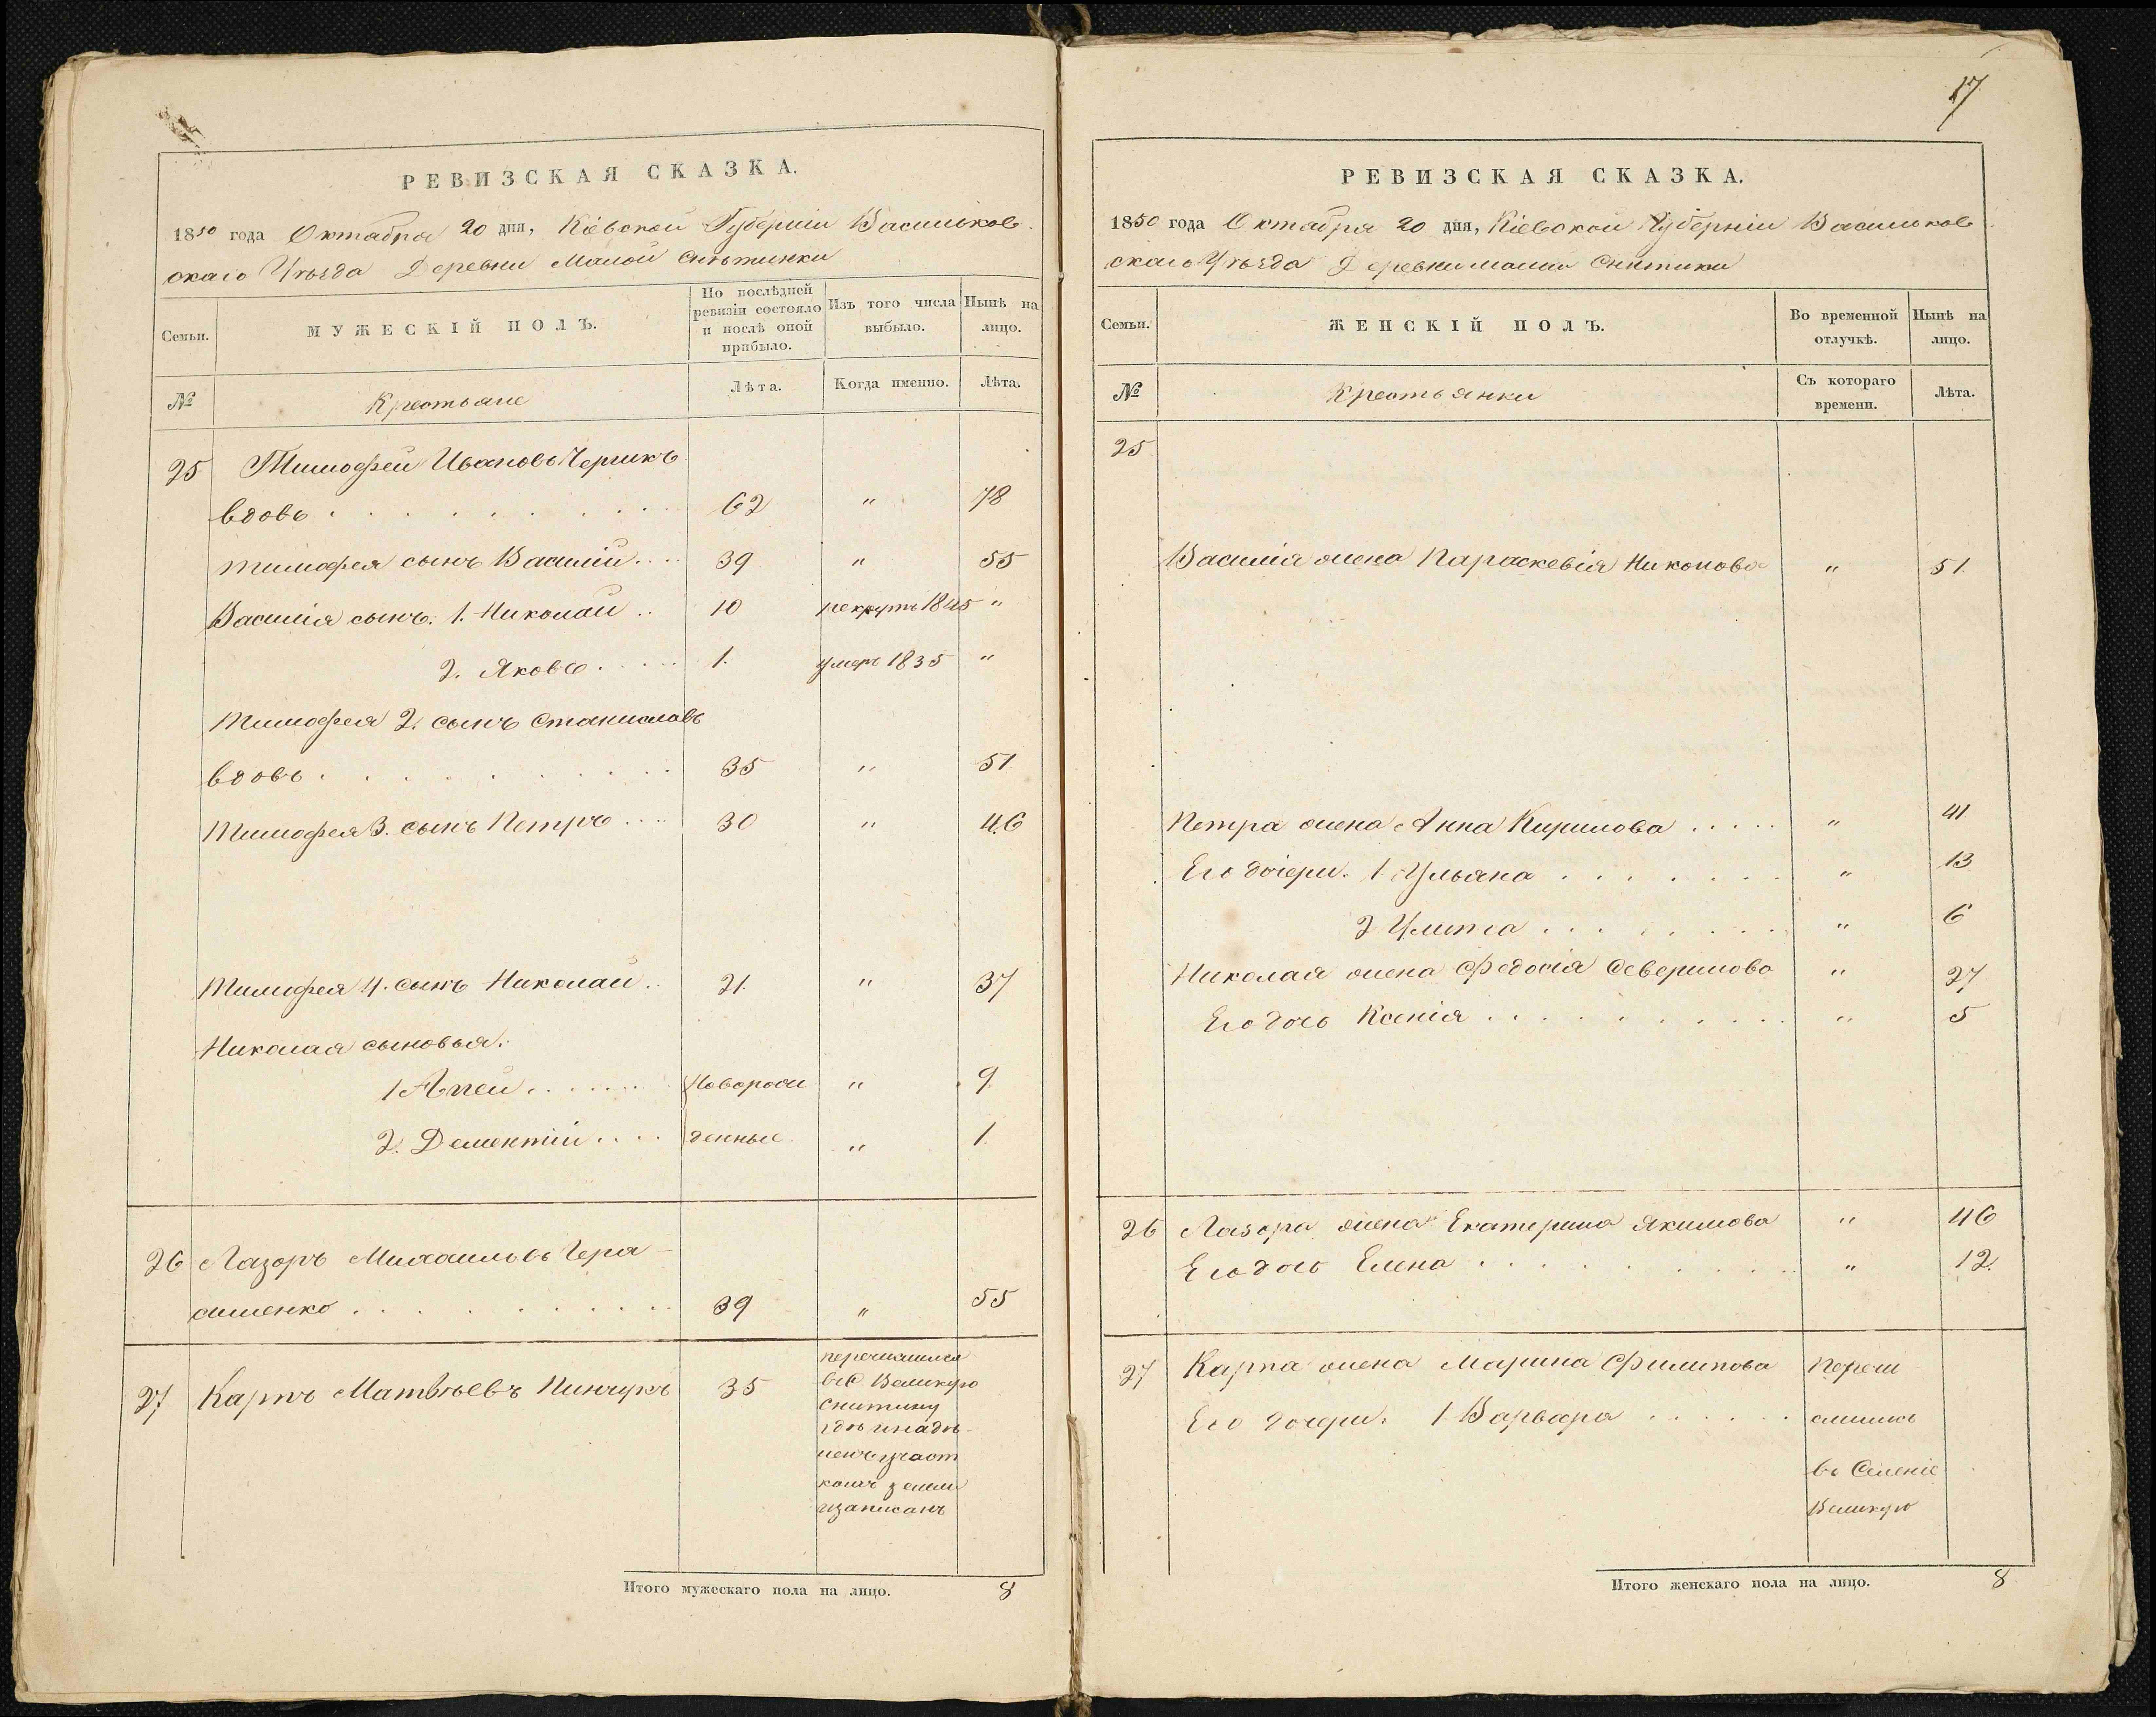 17
РЕВИЗСКАЯ СКАЗКА.
1850 года Октября 20 дня, Кіевской Губерніи Васильков
скаго Уѣзда Деревни Малой Снѣтинки
Семьи.
МУЖЕСКІЙ ПОЛЪ.
По послѣдней ревизіи состояло и послѣ оной прибыло.
Изъ того числа выбыло.
Нынѣ на лицо.
№
Крестьяне
Лѣта.
Когда именно.
Лѣта.
25 Тимофей Ивановъ
вдовъ . . . . . . . . . 62 " 78
Тимофея сынъ Василій .... 39 " 55
Василія сынъ: 1. Николай .. 10 рекрутъ 1845 "
2. Яковъ ..... 1. умеръ 1835 "
Тимофея 2. сынъ Станиславъ
вдовъ . . . . . . . . . 35 " 51
Тимофея 3. сынъ Петръ .... 30 " 46
Тимофея 4. сынъ Николай .. 21. " 37
Николая сыновья:
1 ...... Новорож " 9
2. Дементій .... денные " 1
26 Лазоръ Михаиловъ Гера
сименко . . . . . . . . . 39 " 55
27 Карпъ Матвѣевъ Пинчукъ 35
перечислился
в С Великую
Снитинку
гдѣ и надѣ
ленъ участ
комъ земли
и записанъ
Итого мужескаго пола на лицо. 8
РЕВИЗСКАЯ СКАЗКА.
1850 года Октября 20 дня, Кіевской Губерніи Васильков
скаго Уѣзда Деревни Малой Снитинки
Семьи.
ЖЕНСКІЙ ПОЛЪ.
Во временной отлучкѣ.
Нынѣ на лицо.
№
Крестьянки
Съ котораго времени.
Лѣта.
25
Василія жена Параскевія Никонова " 51
Петра жена Анна Кирилова ..... " 41
Его дочери. 1 Ульяна . . . . . . . " 13
2 Улита . . . . . . . " 6
Николая жена Федосія Северинова " 27
Его дочь Ксенія . . . . . . . . " 5
26 Лазора жена Екатерина Якимова " 46
Его дочь Елена . . . . . . . . " 12.
27 Карпа жена Марина Филипова Перечи
Его дочери. 1 Варвара . . . . . слились
въ Селеніе
Великую
Итого женскаго пола на лицо. 8